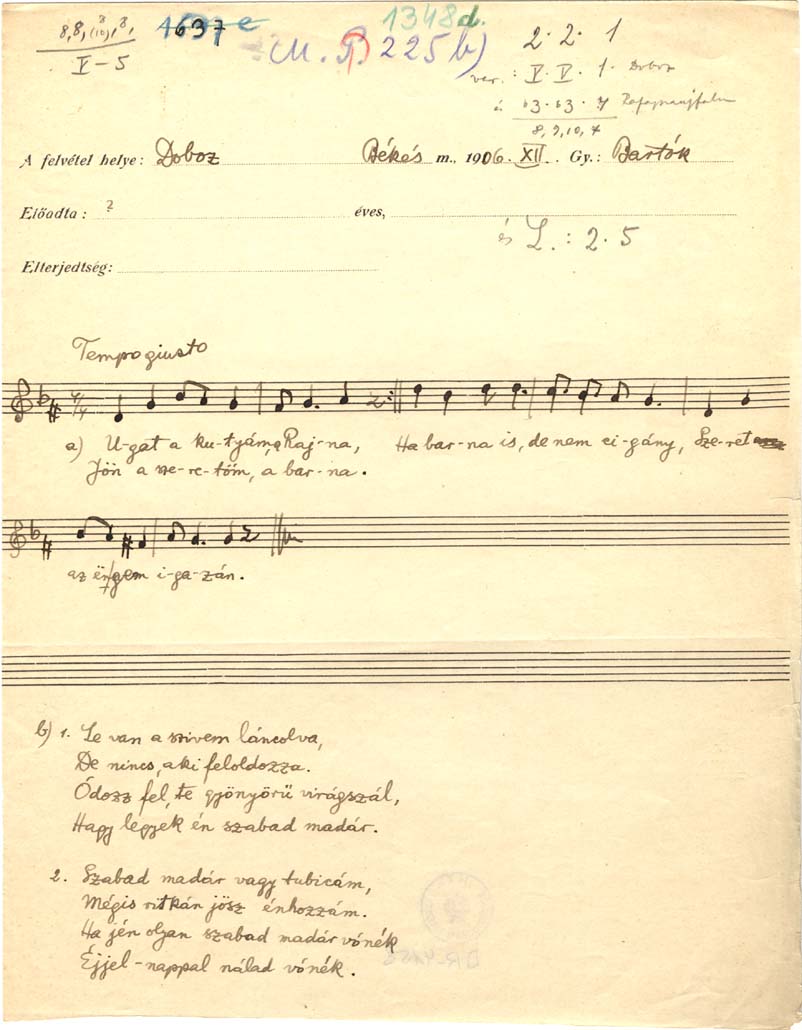 8, 8, 8, 8,
(10)
V – 5
1637 e
1348 d.
M. P. 225 b)
2. 2. 1
var.: V. V. 1. Doboz
és 63. 63. 7
8, 9, 10, 7
A felvétel helye: Doboz Békés m., 1906. XII. Gy.: Bartók
Előadta: ? éves,
és L.: 2. 5
Elterjedtség:
Tempo giusto
4/4
a) U-gat a ku-tyám, a Raj-na, Ha bar-na is, de nem ci-gány, Sze-ret
Jön a sze-re-tőm, a bar-na.
az ëngem i-ga-zán.
b) 1. Le van a szivem láncolva,
De nincs, aki feloldozza.
Ódozz fel, te gyönyörű virágszál,
Hagy légyek én szabad madár.
2. Szabad madár vagy tubicám,
Mégis ritkán jösz énhozzám.
Ha jén olyan szabad madár vónék
Éjjel-nappal nálad vónék.